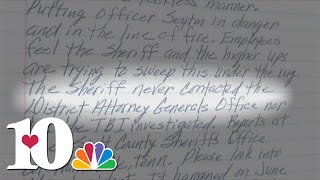 reckless manner.
Putting Officer Seytm in danger
and in the line of fire. Employees
feel the Sheriff and the higher ups
are trying to sweep this under the rug.
The Sheriff never contacted the
District Attorney Generals Office nor
TBI investigated. Reports at
County Sheriff's Office
Tenn. Please look into
it happened on June
10